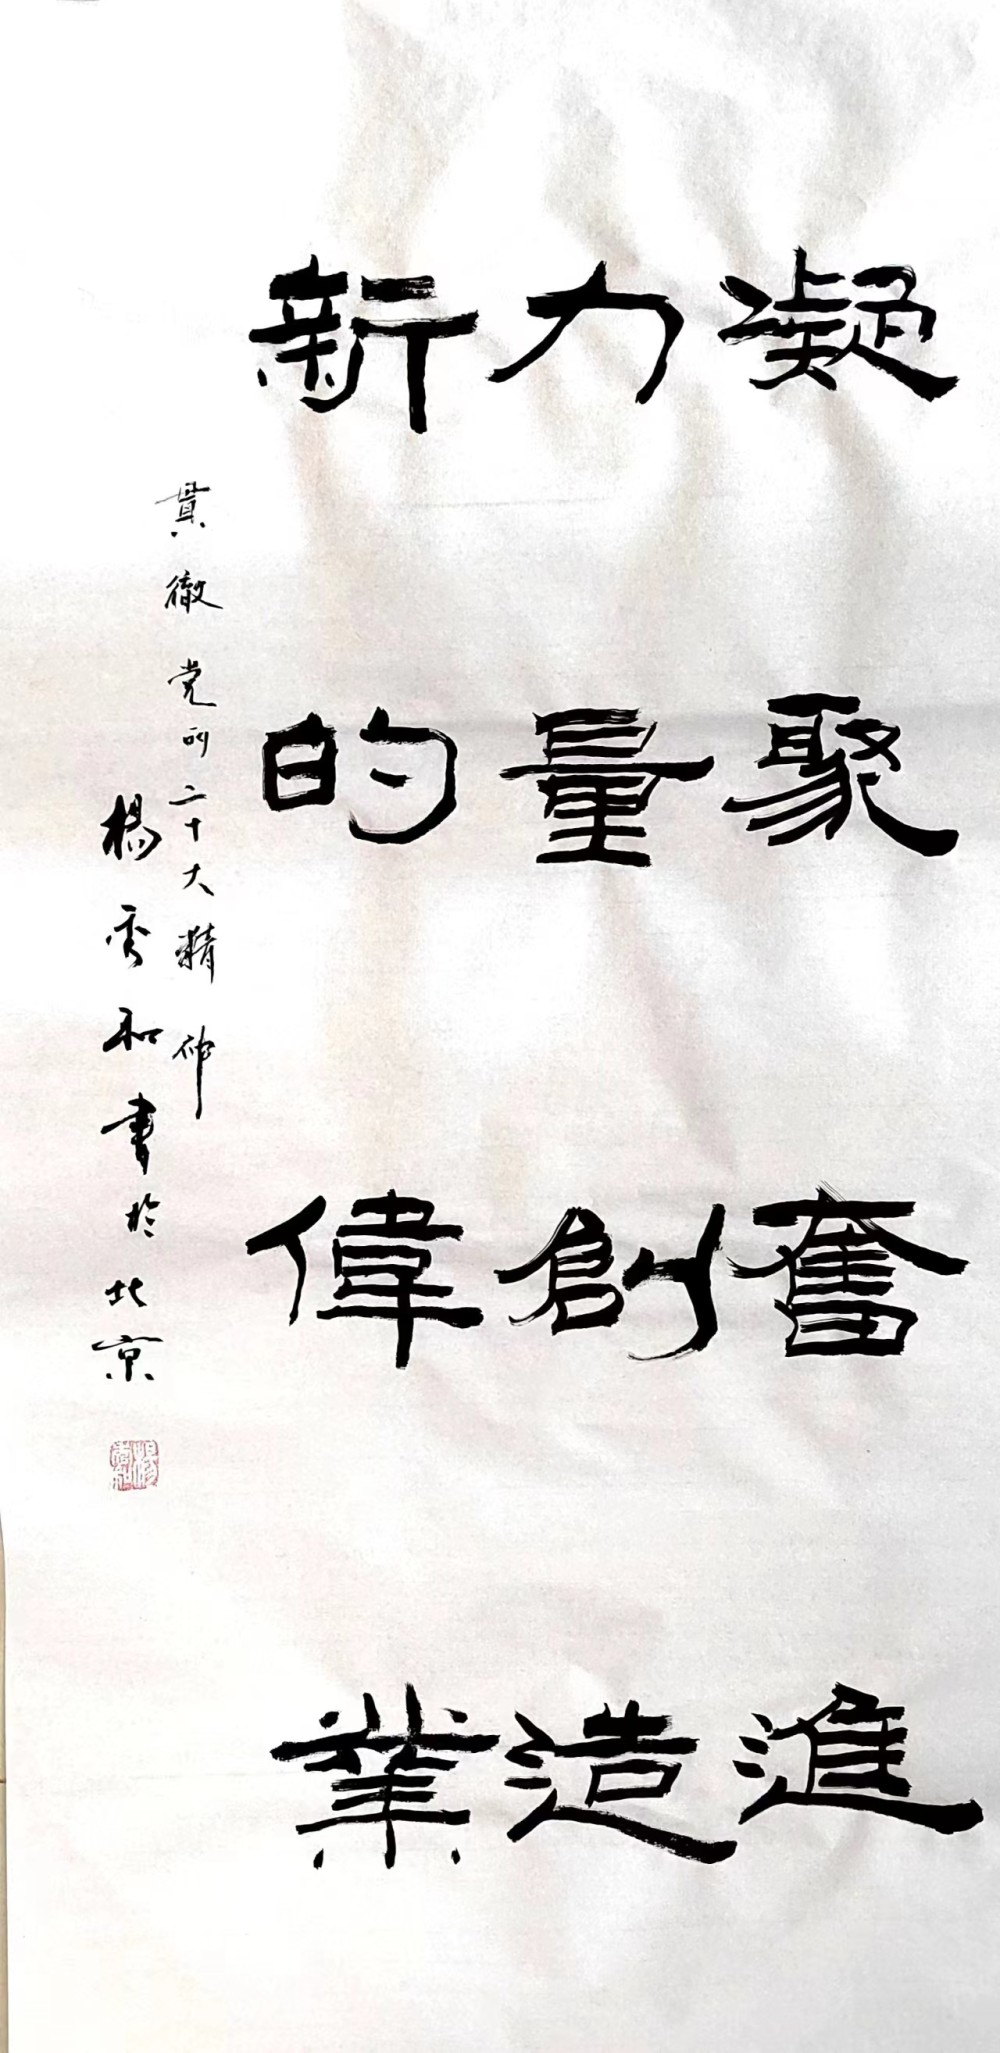 凝聚奮進
力量創造
新的偉業
貫徹党的二十大精神
楊秀和書於北京